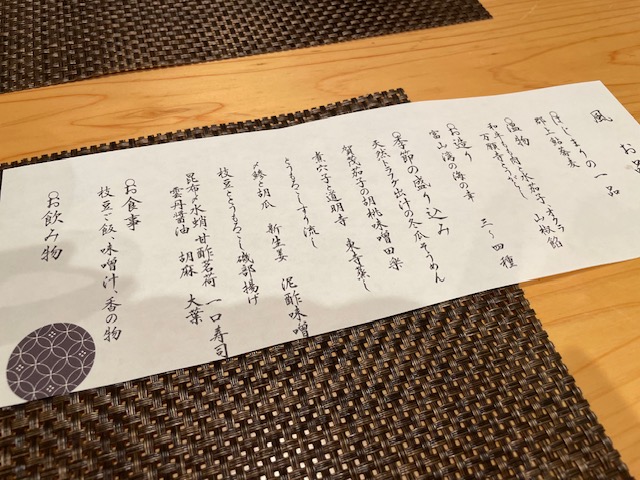 お品
風
○はじまりの一品
郡上鮎蕎麦
○温物
和牛しゃぶ肉と水茄子、オクラ 山椒餡
万願寺とうがらし
○お造り
富山湾の海の幸 三〜四種
○季節の盛り込み
天然トラフグ出汁の冬瓜そうめん
賀茂茄子の胡桃味噌田楽
煮穴子と道明寺 東寺蒸し
とうもろこしすり流し
〆鯵と胡瓜 新生姜 泥酢味噌
枝豆とうもろこし磯部揚げ
昆布〆水蛸 甘酢茗荷 一口寿司
雲丹醤油 胡麻 大葉
○お食事
枝豆ご飯、味噌汁、香の物
○お飲み物